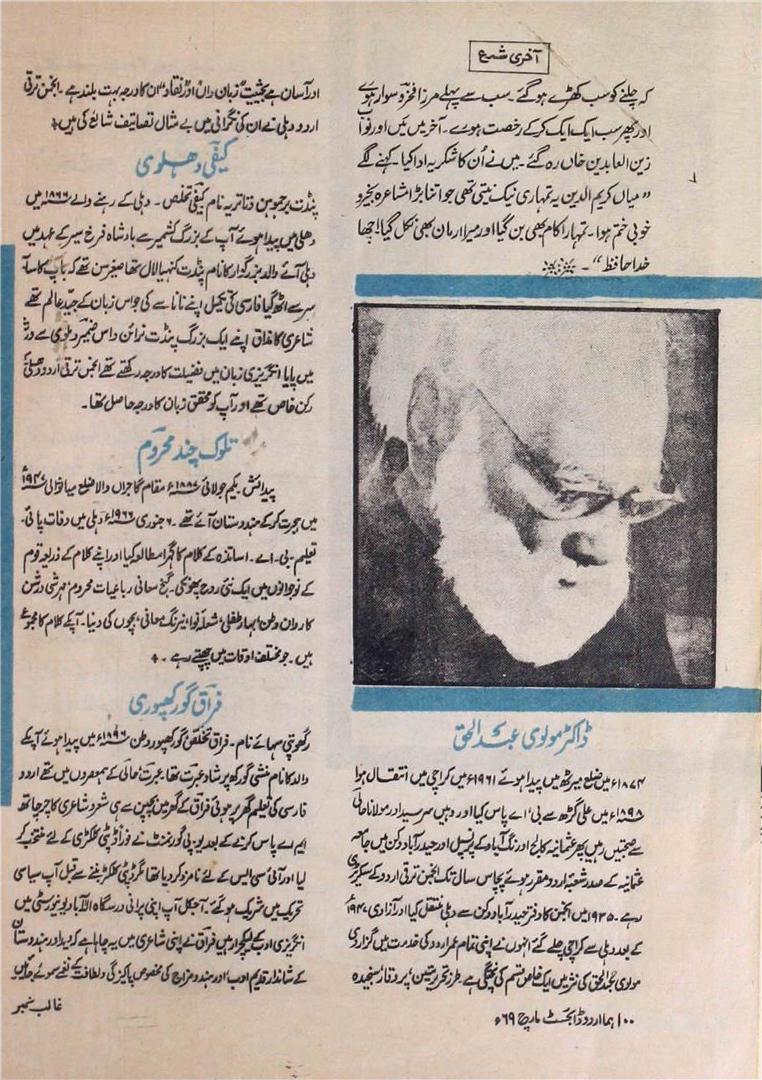 آخری شمع
کہ چلنے کو سب کھڑے ہو گئے۔ سب سے پہلے مرزا فخرو سوار ہوئے
اور پھر سب ایک ایک کر کے رخصت ہوئے۔ آخر میں مَیں اور نواب
زین العابدین خاں رہ گئے۔ میں نے اُن کا شکریہ ادا کیا۔ کہنے لگے
"میاں کریم الدین یہ تمہاری نیک نیتی تھی جو اتنا بڑا مشاعرہ بخیر و
خوبی ختم ہوا۔ تمہارا کام بھی بن گیا اور میرا ارمان بھی نکل گیا! اچھا
خدا حافظ"۔
ڈاکٹر مولوی عبدالحق
۱۸۷۲ء میں ضلع میرٹھ میں پیدا ہوئے ۱۹۶۱ء میں کراچی میں انتقال ہوا
۱۸۹۸ء میں علی گڑھ سے بی' اے پاس کیا اور وہیں سر سید اور مولانا حالی
سے صحبتیں رہیں پھر عثمانیہ کالج اورنگ آباد کے پرنسپل اور حیدرآباد دکن میں جامعہ
عثمانیہ کے صدر شعبۂ اردو مقرر ہوئے پچاس سال تک انجمن ترقی اردو کے سکریٹری
رہے۔ ۱۹۳۵ میں انجمن کا دفتر حیدرآباد دکن سے دہلی منتقل کیا اور آزادی ۱۹۴۷ء
کے بعد دہلی سے کراچی چلے گئے انہوں نے اپنی تمام عمر اردو کی خدمت میں گزاری
مولوی عبدالحق کی نثر میں ایک خاص قسم کی پختگی ہے طرز تحریر متین' پر وقار' سنجیدہ
اور آسان ہے بحیثیت "زبان داں" اور "نقاد" ان کا درجہ بہت بلند ہے۔ انجمن ترقی
اردو دہلی نے ان کی نگرانی میں بے مثال تصانیف شائع کی ہیں
کیفی دہلوی
پنڈت برجموہن دتاتریہ نام کیفی تخلص۔ دہلی کے رہنے والے ۱۸۶۶ء میں
دہلی میں پیدا ہوئے آپ کے بزرگ کشمیر سے بادشاہ فرخ سیر کے عہد میں
دہلی آئے والد بزرگوار کا نام پنڈت کنہیا لال تھا صغیر سن تھے کہ باپ کا سایہ
سر سے اٹھ گیا فارسی کی تکمیل اپنے نانا سے کی جو اس زبان کے جید عالم تھے
شاعری کا مذاق اپنے ایک بزرگ پنڈت نرائن داس ضمیر دہلوی سے ورثہ
میں پایا انگریزی زبان میں فضیلت کا درجہ رکھتے تھے انجمن ترقی اردو دہلی کے
رکن خاص تھے اور آپ کو محقق زبان کا درجہ حاصل تھا۔
تلوک چند محروم
پیدائش یکم جولائی ۱۸۸۷ء مقام گاجراں والا ضلع میانوالی ۱۹۴۷ء
میں ہجرت کر کے ہندوستان آئے تھے۔ ۶ جنوری ۱۹۶۶ء دہلی میں وفات پائی۔
تعلیم۔ بی۔ اے۔ اساتذہ کے کلام کا گہرا مطالعہ کیا اور اپنے کلام کے ذریعہ قوم
کے نوجوانوں میں ایک نئی روح پھونکی۔ گنج معانی رباعیات محروم' مہرشی درشن
کاروان وطن' بہار طفلی' شعلہ نوا' نیرنگ معانی' بچوں کی دنیا۔ آپکے کلام کا مجموعے
ہیں۔ جو مختلف اوقات میں چھپتے رہے۔
فراق گورکھپوری
رگھوپتی سہائے نام۔ فراق تخلص گورکھپور وطن ۱۸۹۶ء میں پیدا ہوئے آپکے
والد کا نام منشی گورکھ پرشاد عبرت تھا۔ عبرت حالی کے ہمعصروں میں تھے اردو
فارسی کی تعلیم گھر پر ہوئی فراق کے گھر میں بچپن سے ہی شعر و شاعری کا چرچا تھا
ایم اے پاس کرنے کے بعد یوپی گورنمنٹ نے فوراً ڈپٹی کلکٹری کے لئے منتخب کر
لیا اور آئی سی ایس کے لئے نامزد کر دیا تھا مگر ڈپٹی کلکٹر بننے سے قبل آپ سیاسی
تحریک میں شریک ہو گئے۔ آجکل آپ اپنی پرانی درسگاہ الہ آباد یونیورسٹی میں
انگریزی ادب کے لیکچرار ہیں فراق نے اپنی شاعری میں یہ چاہا ہے کہ دیدار ہندوستان
کے شاندار قدیم ادب' اور ہندو مزاج کی مخصوص پاکیزگی و لطافت کے نغمے سموئے جائیں
۱۰۰ ہما اردو ڈائجسٹ مارچ ۶۹ء
غالب نمبر